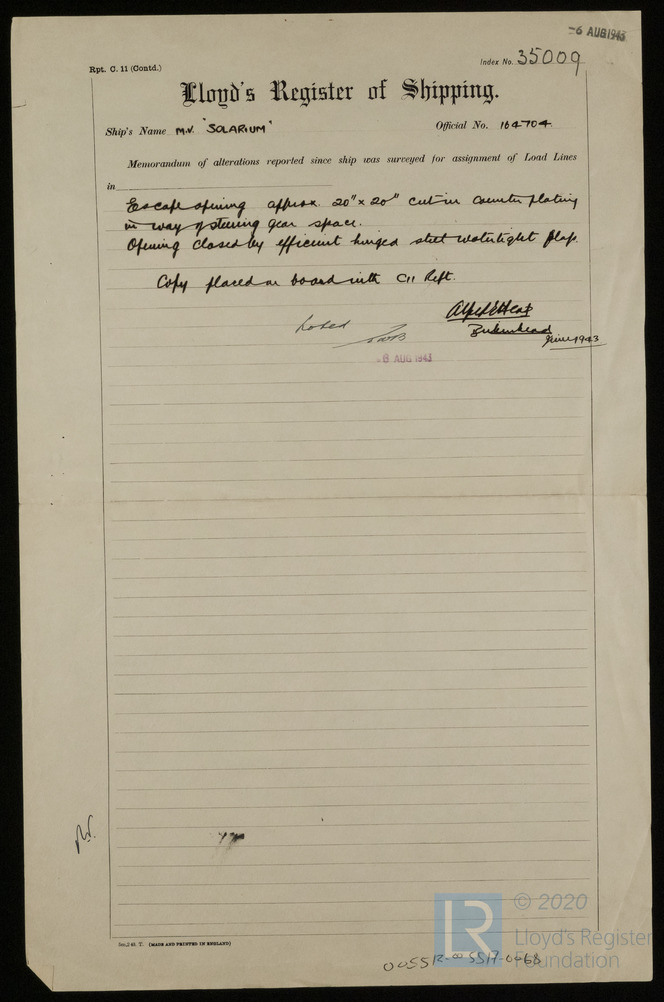 -6 AUG 1943
Rpt. C. 11 (Contd.)
Index No. 35009
Lloyd's Register of Shipping.
Ship's Name M.V. "SOLARIUM"
Official No. 164704.
Memorandum of alterations reported since ship was surveyed for assignment of Load Lines
in
Escape opening approx. 20" x 20" cut in counter plating
in way of steering gear space.
Opening closed by efficient hinged steel watertight flap.
Copy placed on board with C11 Rept.
Noted
Birkenhead
June 1943
-6 AUG 1943
5m,2 43. T. (MADE AND PRINTED IN ENGLAND)
© 2020
LR
Lloyd's Register
Foundation
005512-005517-0068